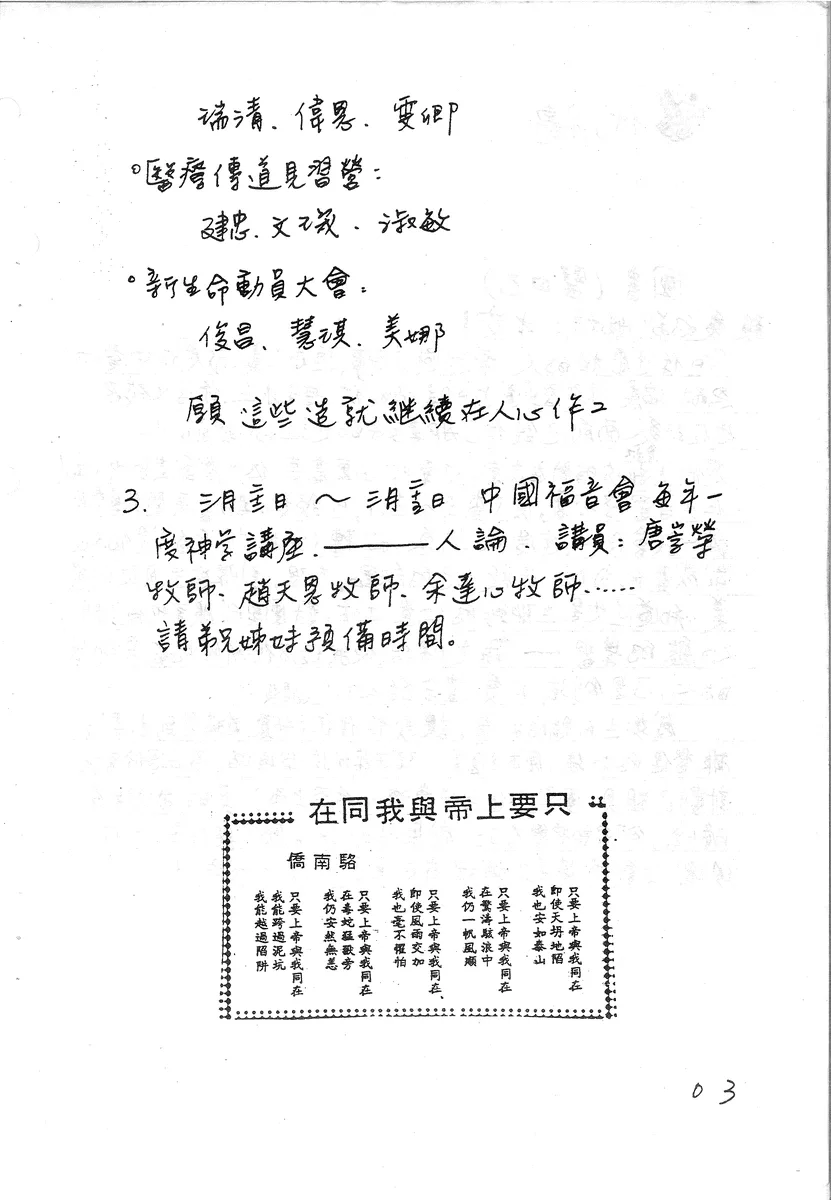 瑞清、偉恩、雯卿
○醫療傳道見習營：
建忠、文瑊、淑敏
○新生命動員大會：
俊昌、慧琪、美娜
願這些造就繼續在人心作工
3. 三月 日 ～ 三月 日 中國福音會每年一
度神学講座.———人論、講員：唐崇榮
牧師、趙天恩牧師、余達心牧師……
請弟兄姊妹預備時間。
只要上帝與我同在
駱南僑
只要上帝與我同在
即使天坍地陷
我也安如泰山
只要上帝與我同在
在驚濤駭浪中
我仍一帆風順
只要上帝與我同在、
即使風雨交加
我也毫不懼怕
只要上帝與我同在
在毒蛇猛獸旁
我仍安然無恙
只要上帝與我同在
我能跨過泥坑
我能越過陷阱
03